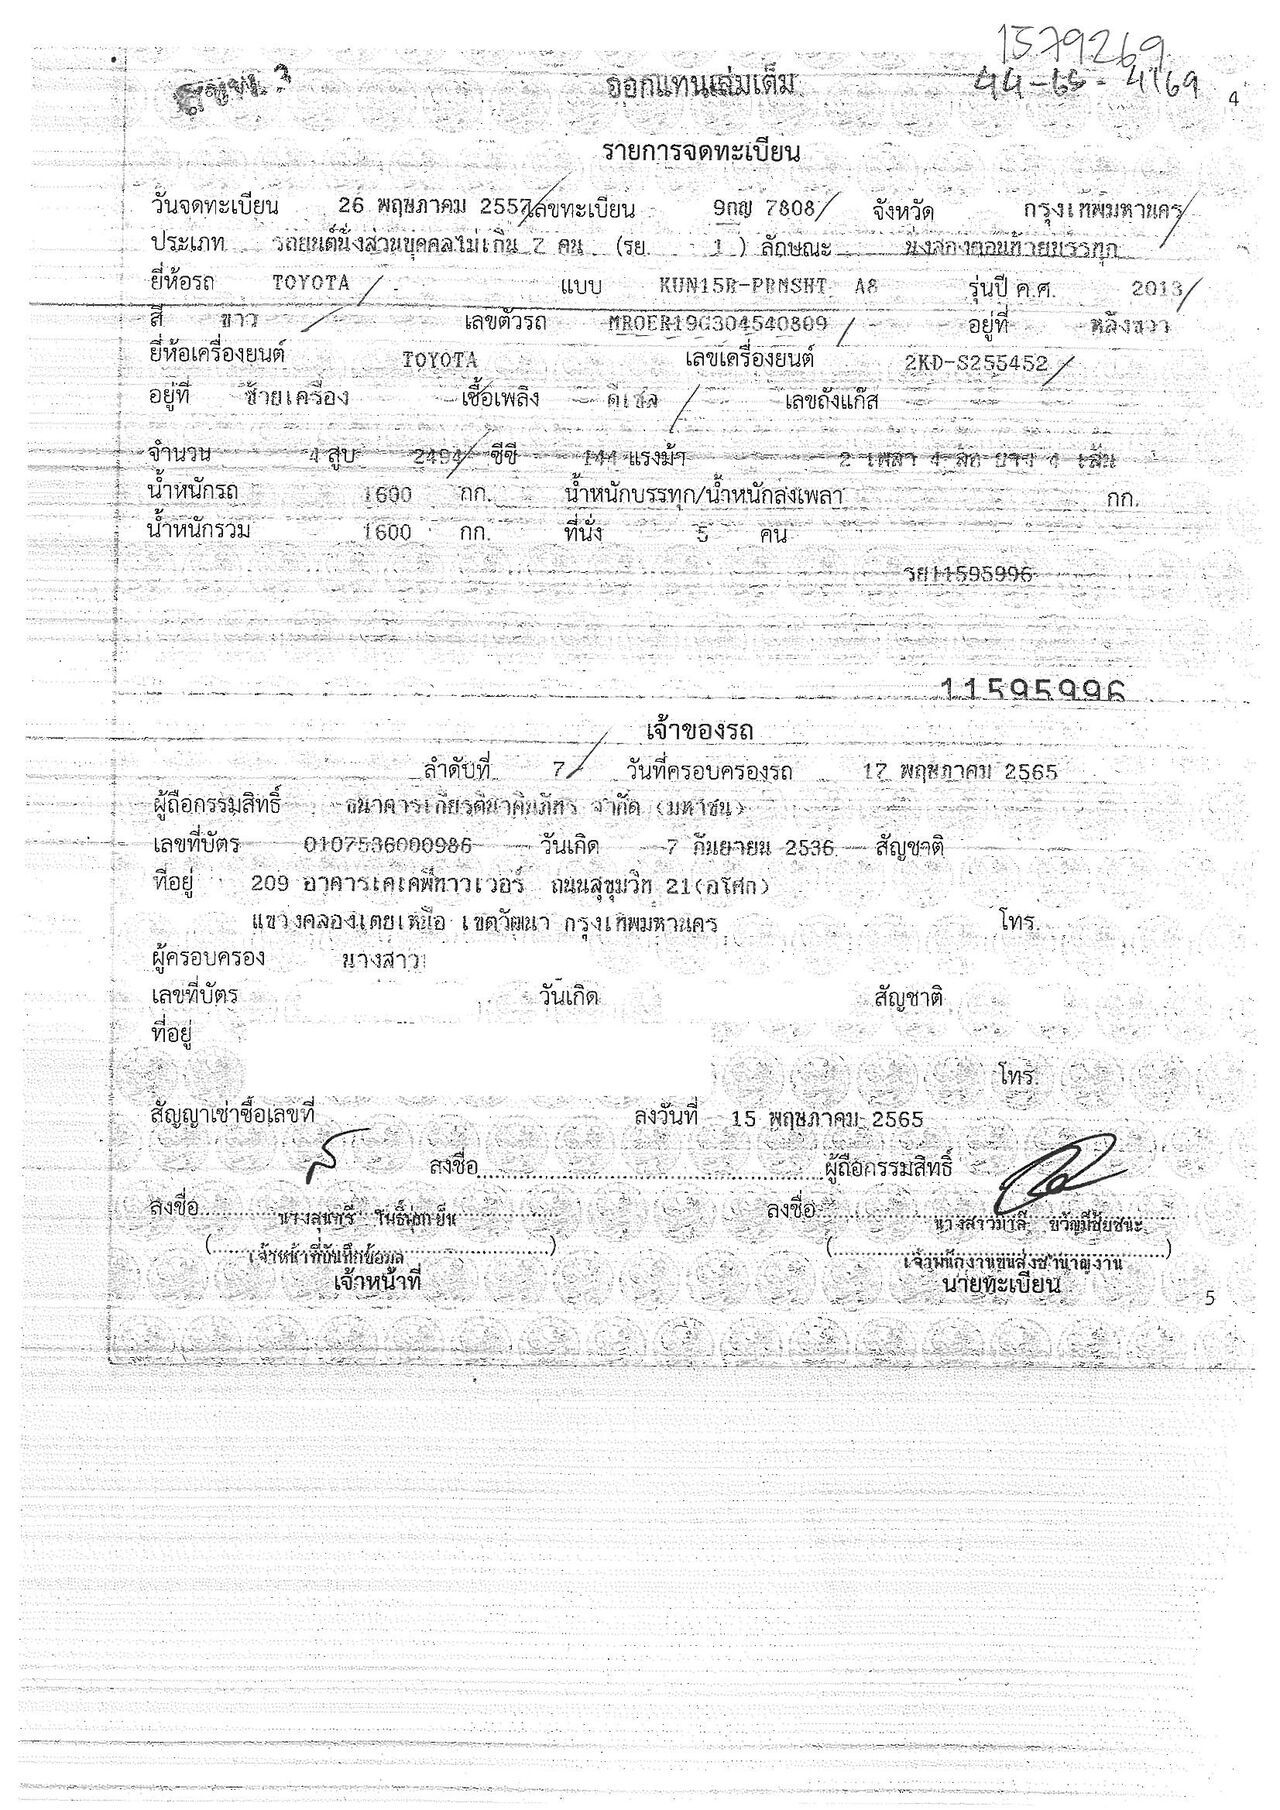 1579269
44-65-4169
ออกแทนเล่มเต็ม
4
รายการจดทะเบียน
วันจดทะเบียน 26 พฤษภาคม 2557 เลขทะเบียน 9กญ 7808 จังหวัด กรุงเทพมหานคร
ประเภท รถยนต์นั่งส่วนบุคคลไม่เกิน 7 คน (รย. 1 ) ลักษณะ นั่งสองตอนท้ายบรรทุก
ยี่ห้อรถ TOYOTA แบบ KUN15R-PRMSHT A8 รุ่นปี ค.ศ. 2013
สี ขาว เลขตัวรถ MR0ER19G304540809 อยู่ที่ หลังขวา
ยี่ห้อเครื่องยนต์ TOYOTA เลขเครื่องยนต์ 2KD-S255452
อยู่ที่ ซ้ายเครื่อง เชื้อเพลิง ดีเซล เลขถังแก๊ส
จำนวน 4 สูบ 2494 ซีซี 144 แรงม้า 2 เพลา 4 ล้อ ยาง 4 เส้น
น้ำหนักรถ 1600 กก. น้ำหนักบรรทุก/น้ำหนักลงเพลา กก.
น้ำหนักรวม 1600 กก. ที่นั่ง 5 คน
รย11595996
11595996
เจ้าของรถ
ลำดับที่ 7 วันที่ครอบครองรถ 17 พฤษภาคม 2565
ผู้ถือกรรมสิทธิ์ ธนาคารเกียรตินาคินภัทร จำกัด (มหาชน)
เลขที่บัตร 0107536000986 วันเกิด 7 กันยายน 2536 สัญชาติ
ที่อยู่ 209 อาคารเคเคพีทาวเวอร์ ถนนสุขุมวิท 21(อโศก)
แขวงคลองเตยเหนือ เขตวัฒนา กรุงเทพมหานคร โทร.
ผู้ครอบครอง นางสาว
เลขที่บัตร วันเกิด สัญชาติ
ที่อยู่
โทร.
สัญญาเช่าซื้อเลขที่ ลงวันที่ 15 พฤษภาคม 2565
ลงชื่อ ผู้ถือกรรมสิทธิ์
ลงชื่อ ลงชื่อ
นางสุนทรี นางสาวมาลี ขวัญมีชัยชนะ
เจ้าหน้าที่บันทึกข้อมูล เจ้าพนักงานขนส่งชำนาญงาน
เจ้าหน้าที่ นายทะเบียน
5